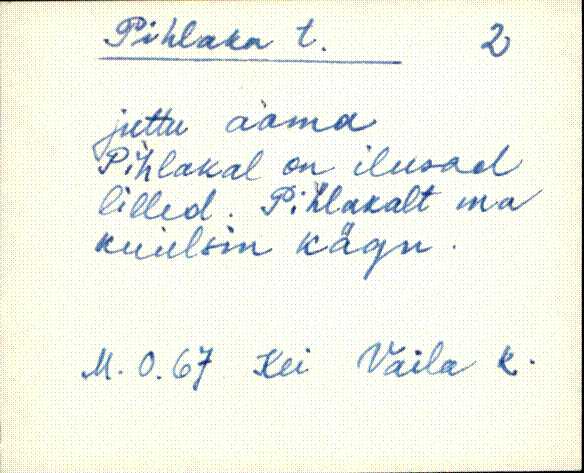 Pihlaka t. 2
juttu aama
Pihlakal on ilusad
lilled. Pihlakalt ma
kuulsin kägu.
M. O. 67 Kei Vaila k.